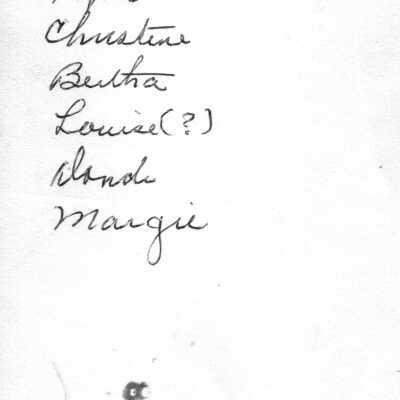 Christine
Bertha
Louise(?)
Margie